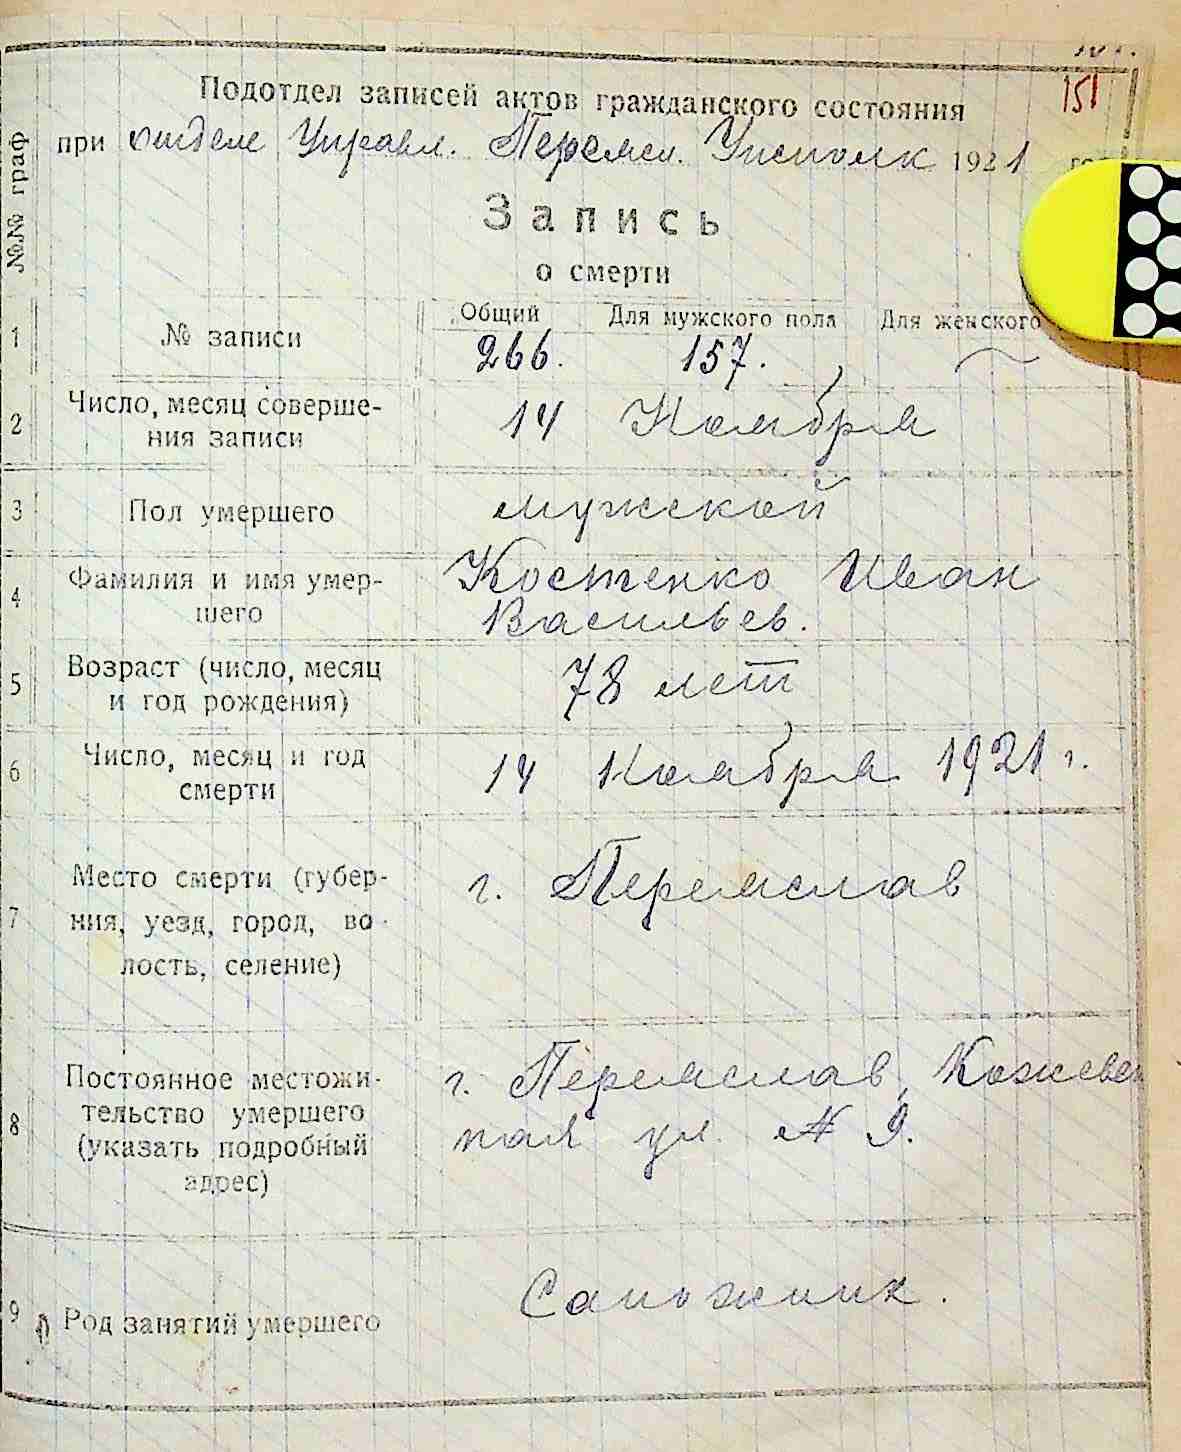 151
Подотдел записей актов гражданского состояния
при отделе Управл. Переясл. Уисполк 1921
№№ граф
Запись
о смерти
Общий Для мужского пола Для женского
1 № записи 266. 157. ~
2 Число, месяц соверше-
ния записи 14 Ноября
3 Пол умершего мужской
4 Фамилия и имя умер-
шего Костенко Иван
Васильев.
5 Возраст (число, месяц
и год рождения) 78 лет
6 Число, месяц и год
смерти 14 Ноября 1921 г.
7 Место смерти (губер-
ния, уезд, город, во-
лость, селение) г. Переяслав
8 Постоянное местожи-
тельство умершего
(указать подробный
адрес) г. Переяслав, Кожевен
ная ул. № 9.
9 Род занятий умершего Сапожник.